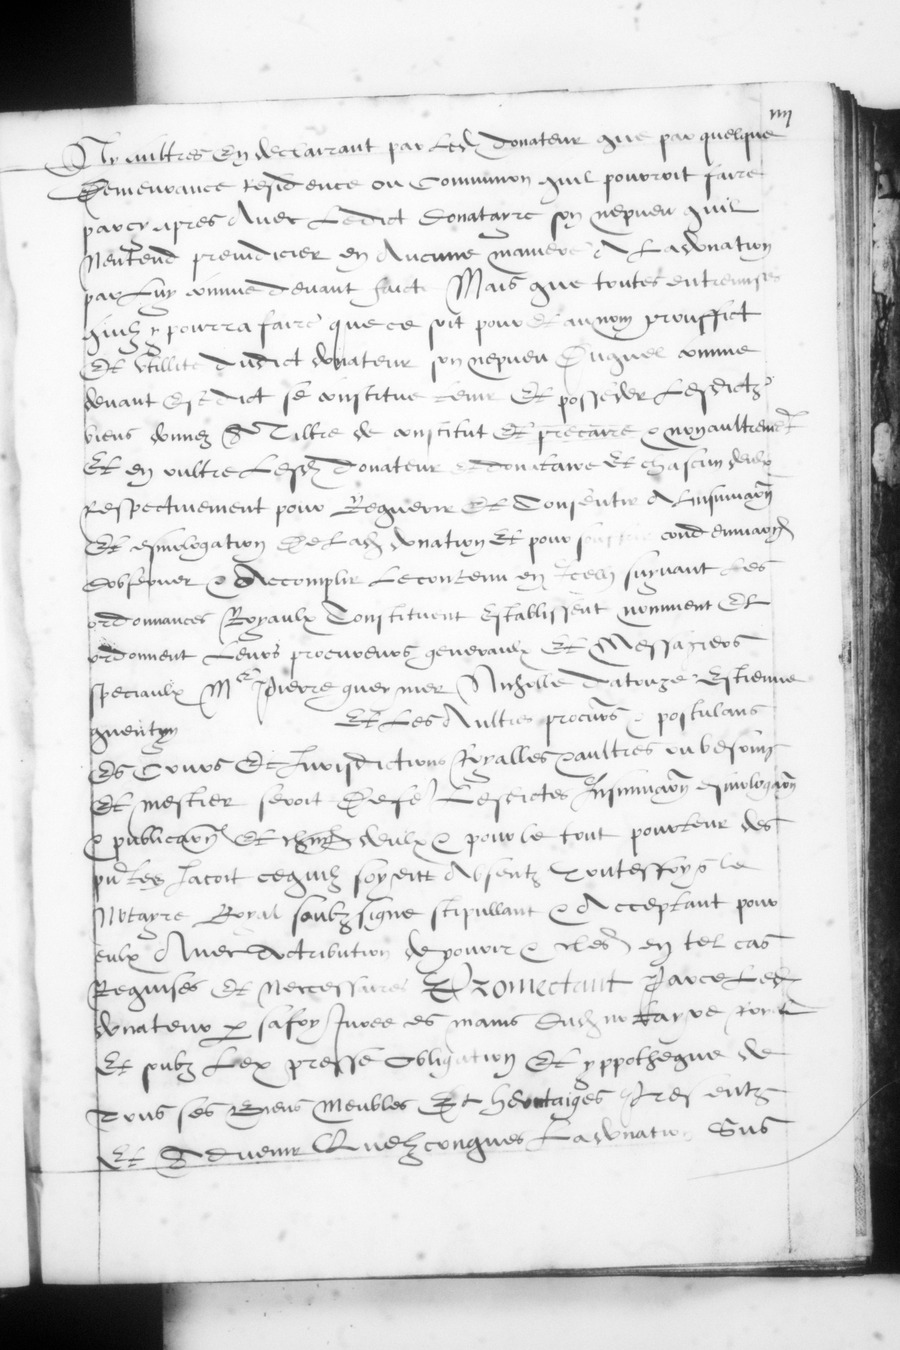 iiii
Ny aultres En declairant par Led donateur que par quelque
Demeurance Residence ou Communion quil pourroit faire
par cy apres Avec Ledict donatayre son nepveu quil
Nentend preiudicier en Aucune maniere A La donation
par Luy comme devant faicte Mais que toutes entremises
quilz y pourra faire que ce soit pour Et au nom prouffict
Et Utillite dudict donateur son nepveu Duquel comme
devant Est dict se constitue tenir Et posseder Lesdictz
biens donnez A Tiltre de constitut Et precaire & non aultrement
Et en oultre Lesd donateur et donataire Et chascun deulx
Respectivement pour Requerir Et Consentir A Linsinuaon
Et esmulogation De Lad donation Et pour condemnaon
dobserver & Accomplir Le contenu en Icelle suyvant Les
ordonnances Royaulx Constituent Establissent nomment Et
ordonnent Leurs procureurs generaulx Et Messagiers
speciaulx Me Pierre Nicholle Estienne
quentyn Et Les Aultres procurs & postulans
Es Cours Et Jurisdictions Royalles & aultres ou besoing
Et mestier seroit Lesdictes Insinuaon esmologaon
& publicaon Et chun deulx & pour le tout porteur des
pntes Jacoit ce quilz soyent Absentz Touteffoys le
Notayre Royal soubz signe stipullant & Acceptant pour
eulx Avec Actribution de pouvoir & en tel cas
Requises Et Neccessaires Promectant Parce Led
donateur par sa foy Juree es mains dud notayre royal
Et soubz Lexpresse Obligation Et yppotheque de
Tous ses Biens Meubles Et heritaiges Presentz
Et Advenir Quelzconques La donation Sus